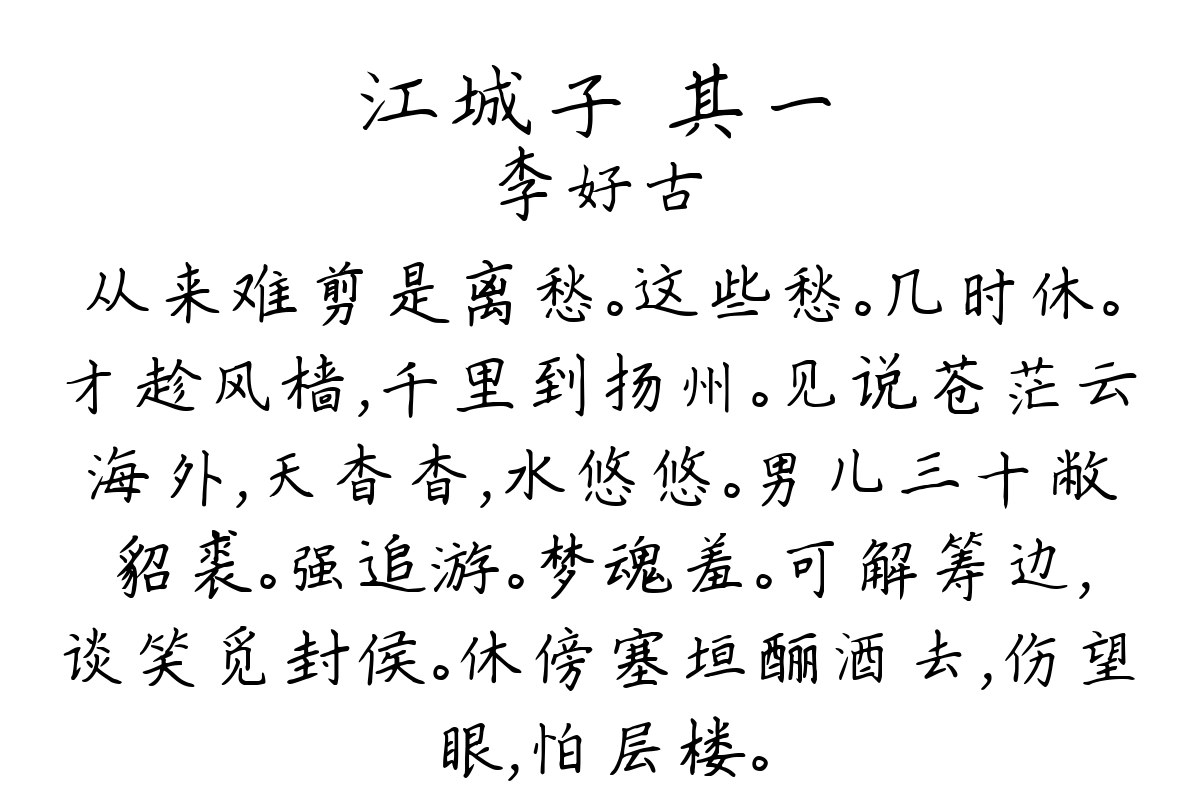 江城子 其一
李好古
从来难剪是离愁。这些愁。几时休。
才趁风樯,千里到扬州。见说苍茫云
海外,天杳杳,水悠悠。男儿三十敝
貂裘。强追游。梦魂羞。可解筹边,
谈笑觅封侯。休傍塞垣酾酒去,伤望
眼,怕层楼。